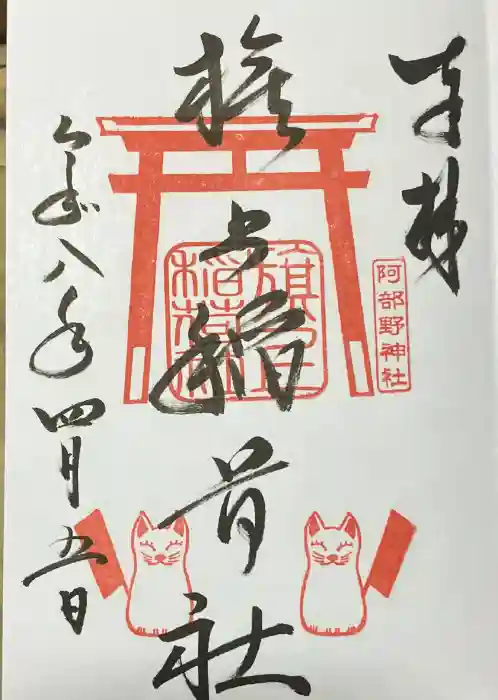 奉拝
阿部野神社
旗上稲荷社
旗上稲荷社
令和八年四月五日